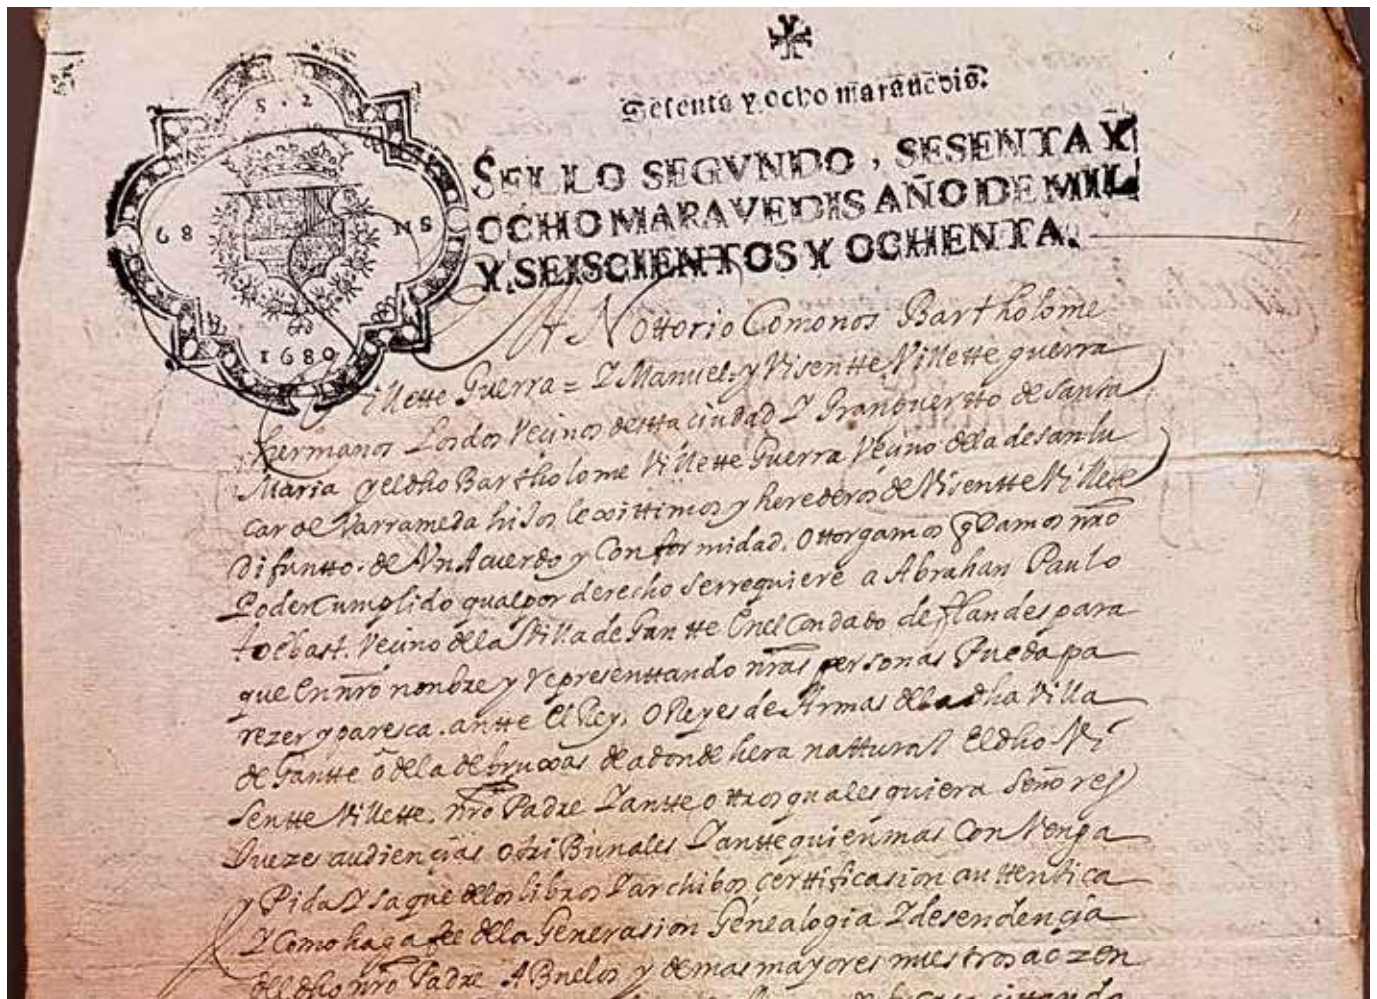 Sesenta y ocho marauedis.
SELLO SEGVNDO, SESENTA Y
OCHO MARAVEDIS AÑO DE MIL
Y SEISCIENTOS Y OCHENTA.
5 . 2
68 MS
1680
Nottorio Comonos Bartholome
Villette Guerra = Y Manuel, y Visentte Villette guerra
hermanos Los dos Vecinos desta ciudad Y Gran puertto de santa
Maria y el dho Bartholome Villette Guerra Vecino de la de san lu
car de Varrameda hijos lexittimos y herederos de Visentte Villete
Difuntto. de Vn Acuerdo y Conformidad. ottorgamos q Damos nrõ
Poder Cumplido qual por derecho se rrequiere a Abrahan Paulo
Vecino de la Villa de Gantte En el Condado de flandes para
que En nrõ nonbre y representtando nrãs personas Pueda pa
rezer y paresca. antte El Rey, O Reyes de Armas de la dha Villa
de Gantte õ de la de bruxas de adonde hera nattural El dho Vi
sentte Villette. nrõ Padre Y antte ottros qualesquiera Señores
Juezes audiençias o tribunales Y antte quien mas Convenga
y Pida Y saque de los libros Y archibos certtificasion auttentica
Y Como haga fee de la Generasion Genealogia Y desendençia
del dho nrõ Padre Abuelos y demas mayores nuestros